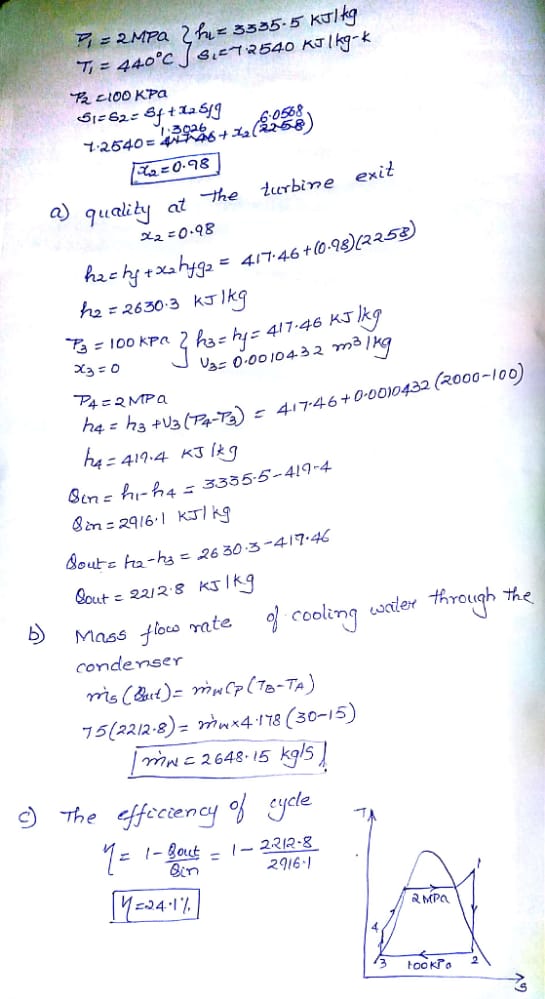 P₁ = 2MPa } h₁ = 3335.5 KJ/kg
T₁ = 440°C } S₁ = 7.2540 KJ/kg-k
P₂ = 100 KPa
S₁ = S₂ = Sf + x₂ Sfg
7.2540 = 1.3026 + x₂ (6.0568)
x₂ = 0.98
a) quality at the turbine exit
x₂ = 0.98
h₂ = hf + x₂ hfg₂ = 417.46 + (0.98)(2258)
h₂ = 2630.3 KJ/kg
P₃ = 100 KPa } h₃ = hf = 417.46 KJ/kg
x₃ = 0 } V₃ = 0.0010432 m³/kg
P₄ = 2MPa
h₄ = h₃ + V₃ (P₄-P₃) = 417.46 + 0.0010432 (2000-100)
h₄ = 419.4 KJ/kg
Qin = h₁-h₄ = 3335.5-419.4
Qin = 2916.1 KJ/kg
Qout = h₂-h₃ = 2630.3-417.46
Qout = 2212.8 KJ/kg
b) Mass flow rate of cooling water through the
condenser
ṁs (Qout) = ṁw Cp (TB-TA)
75(2212.8) = ṁw × 4.178 (30-15)
ṁw = 2648.15 kg/s
c) The efficiency of cycle
η = 1 - Qout/Qin = 1 - 2212.8/2916.1
η = 24.1%
T
1
2MPa
4
3
100KPa
2
S